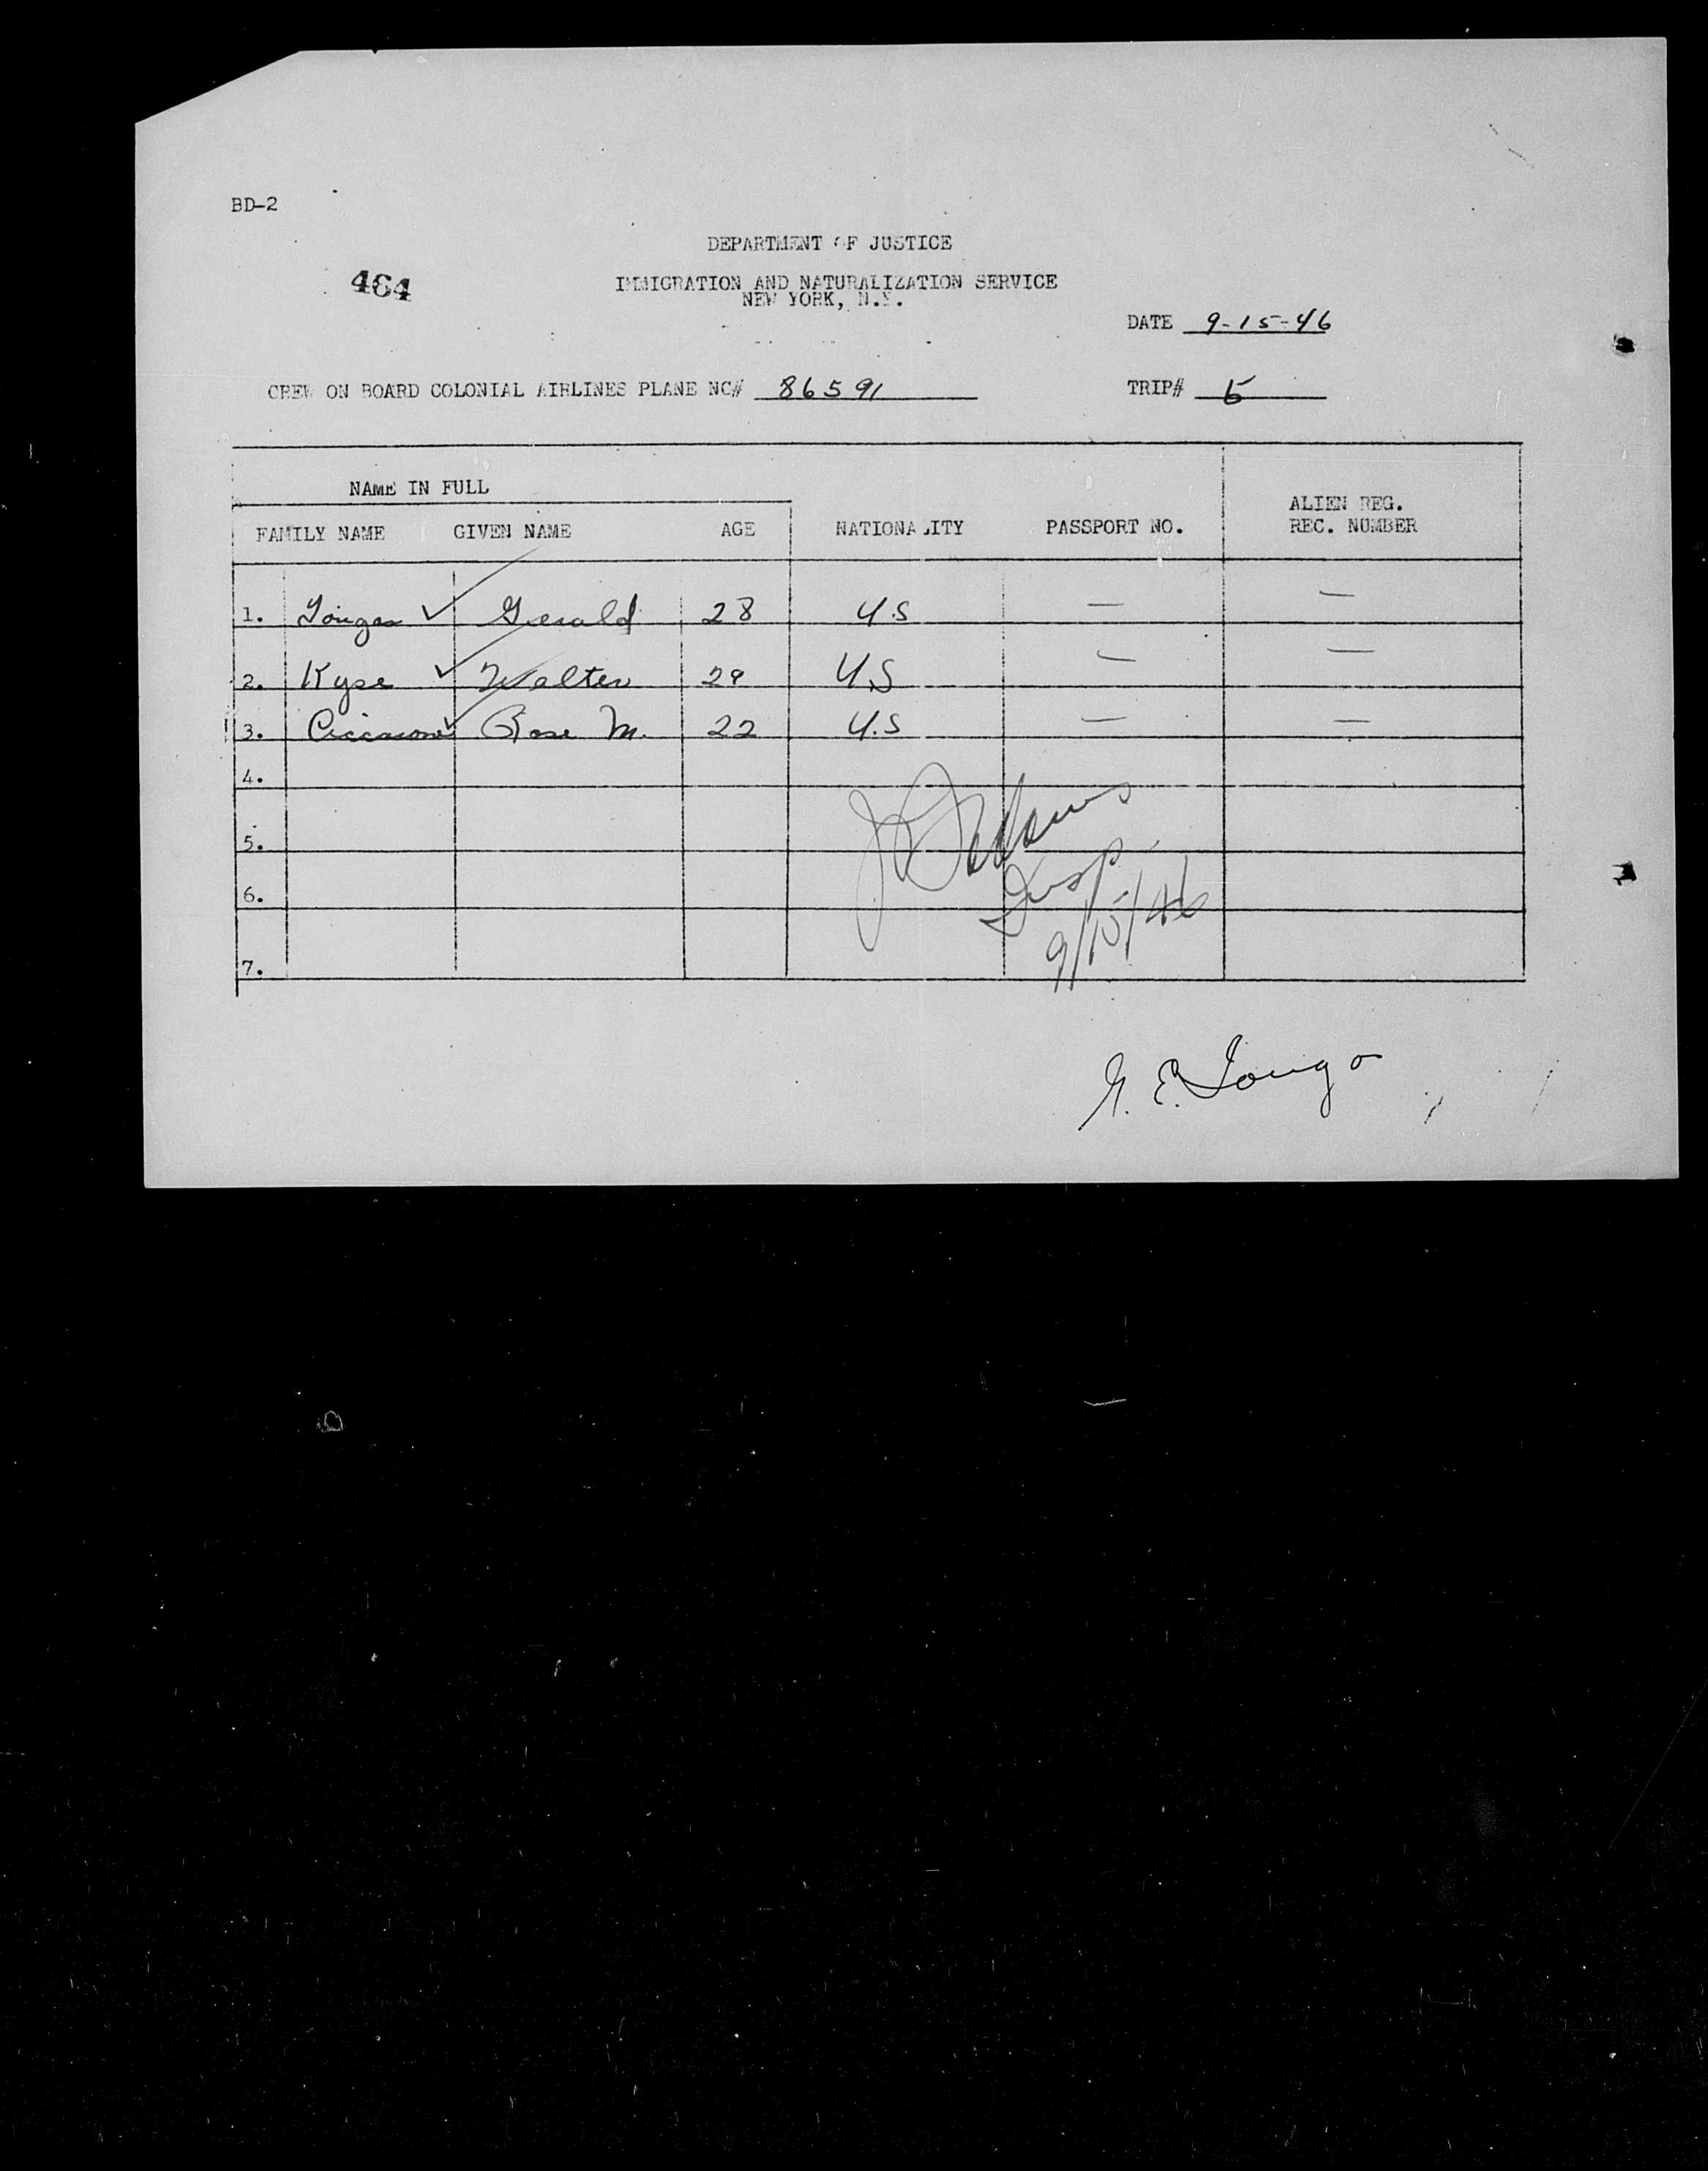 BD-2
DEPARTMENT OF JUSTICE
464
IMMIGRATION AND NATURALIZATION SERVICE
NEW YORK, N.Y.
DATE 9-15-46
CREW ON BOARD COLONIAL AIRLINES PLANE NC# 86591
TRIP# 5
NAME IN FULL
FAMILY NAME GIVEN NAME AGE NATIONALITY PASSPORT NO. ALIEN REG. REC. NUMBER
1. Gerald 28 U.S — —
2. Kyse Walter 29 U.S — —
3. Rose M. 22 U.S — —
4.
5.
6.
7.
Insp.
9/15/46
G. E.